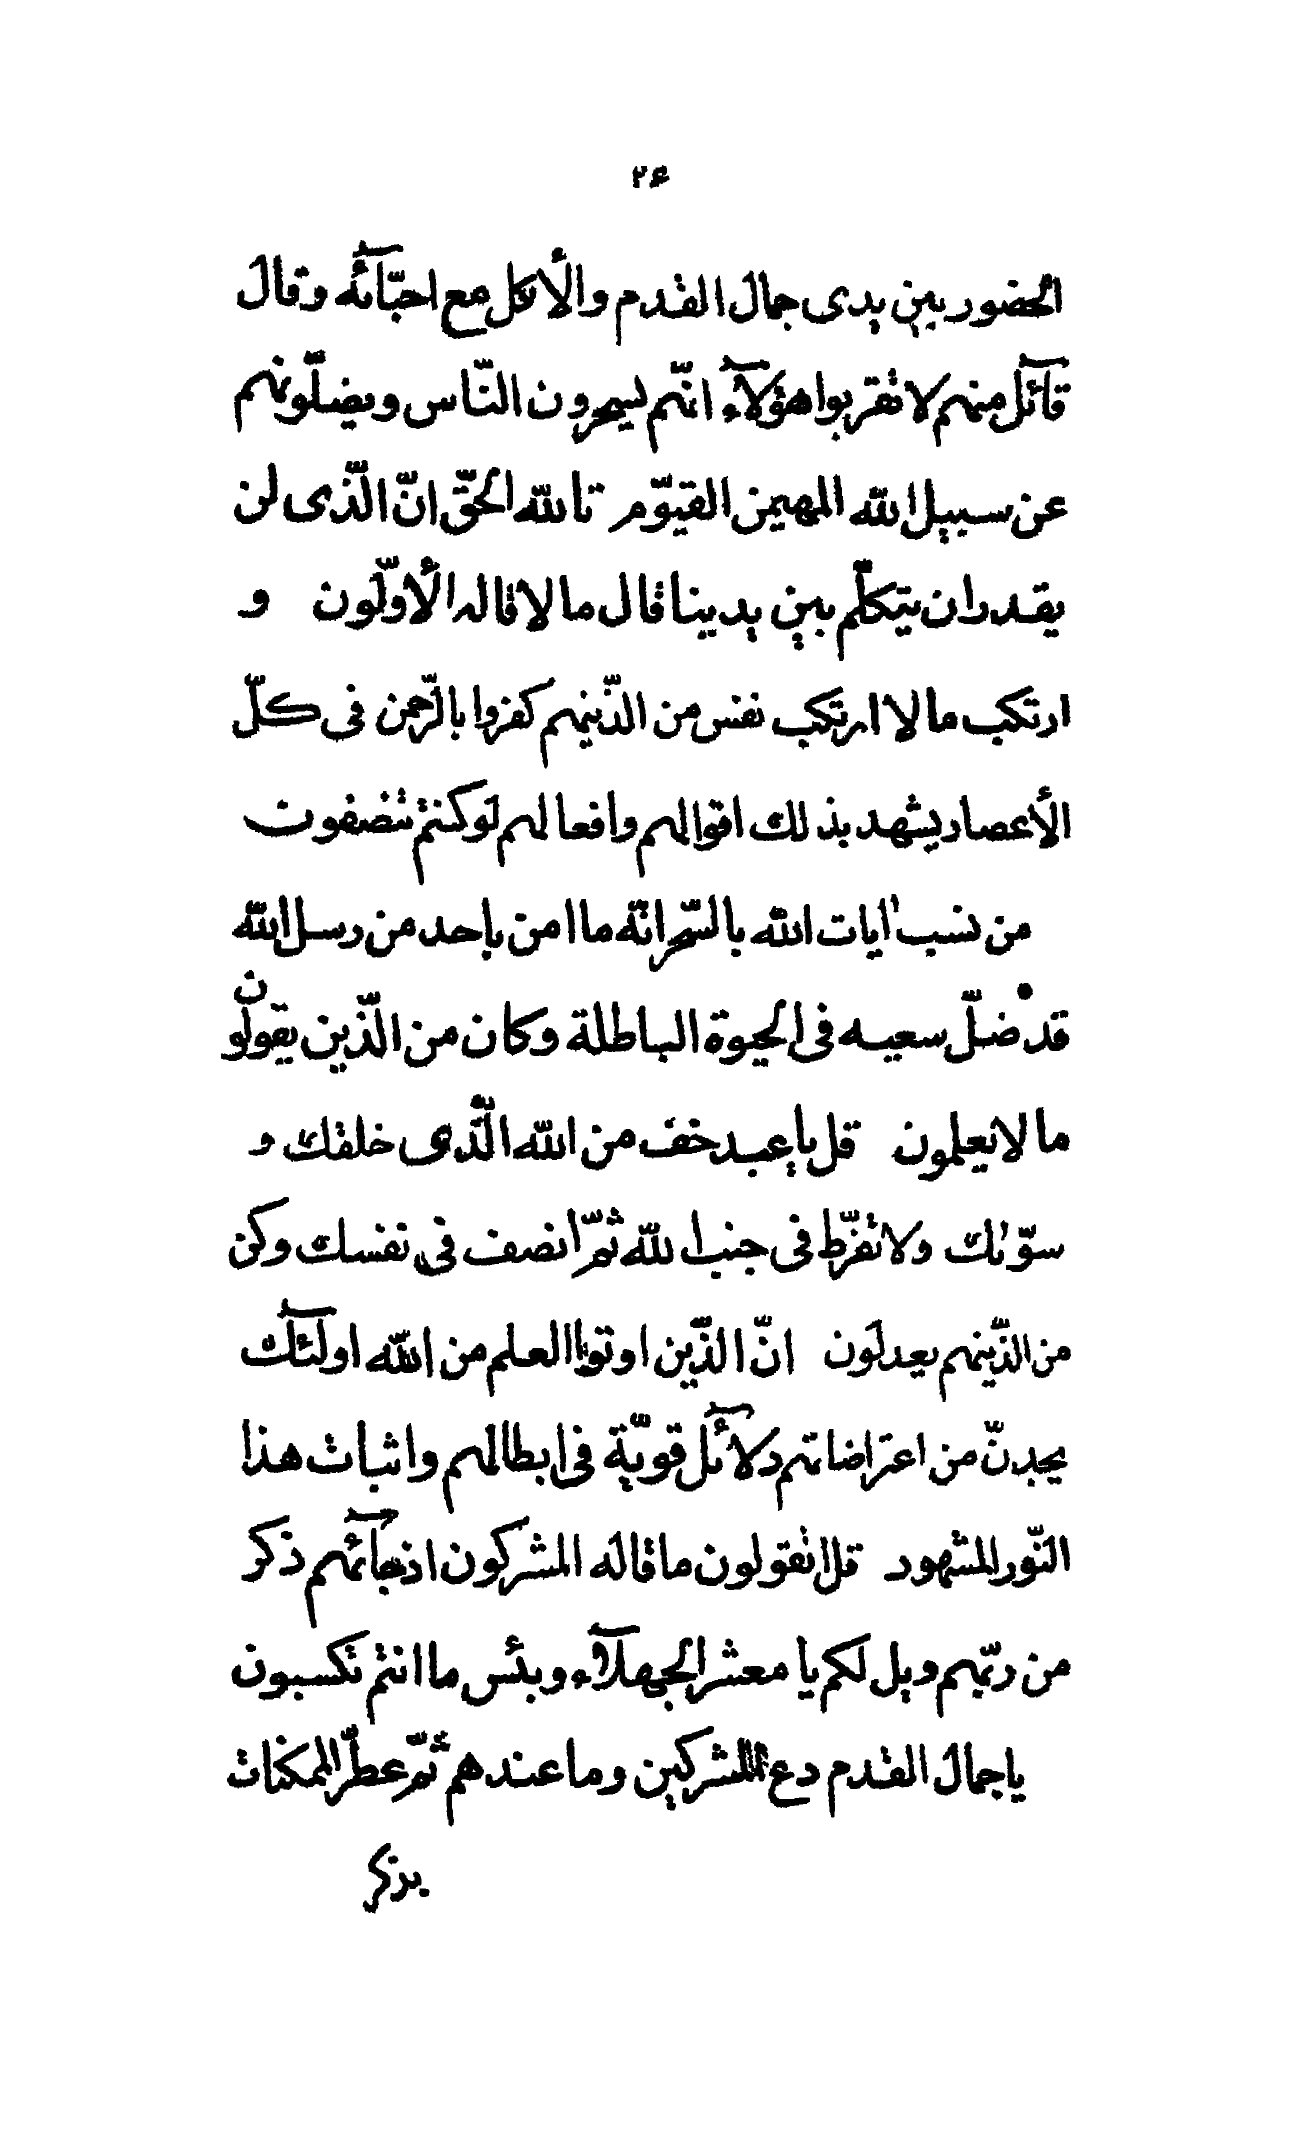 ٢۶
الحضور بين يدى جمال القدم والأكل مع احبّآئه وقال
قآئل منهم لا تقربوا هؤلآء انّهم يسحرون النّاس ويضلّونهم
عن سبيل الله المهيمن القيّوم تالله الحقّ انّ الّذى لن
يقدر ان يتكلّم بين يدينا قال ما لا قاله الأوّلون و
ارتكب ما لا ارتكب نفس من الّذينهم كفروا بالرّحمن فى كلّ
الأعصار يشهد بذلك اقوالهم وافعالهم لو كنتم تنصفون
من نسب ايات الله بالسّحر انّه ما امن باحد من رسل الله
قد ضلّ سعيه فى الحيوة الباطلة وكان من الّذين يقولون
ما لا يعلمون قل يا عبد خف من الله الّذى خلقك و
سوّيك ولا تفرّط فى جنب الله ثمّ انصف فى نفسك وكن
من الّذينهم يعدلون انّ الّذين اوتوا العلم من الله اولئك
يجدنّ من اعتراضاتهم دلآئل قويّة فى ابطالهم واثبات هذا
النّور المشهود قل اتقولون ما قاله المشركون اذ جآئهم ذكر
من ربّهم ويل لكم يا معشر الجهلآء وبئس ما انتم تكسبون
يا جمال القدم دع المشركين وما عندهم ثمّ عطّر الممكنات
بذكر